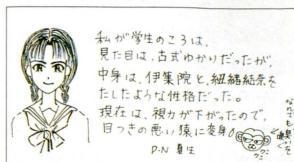 私が学生のころは、
見た目は、古式ゆかりだったが、
中身は、伊集院と、紐緒結奈を
たしたような性格だった。
現在は、視力が下がったので、
目つきの悪い猿に変身♪
D・N 夏生
なんでも
嗅いで
クン
クン